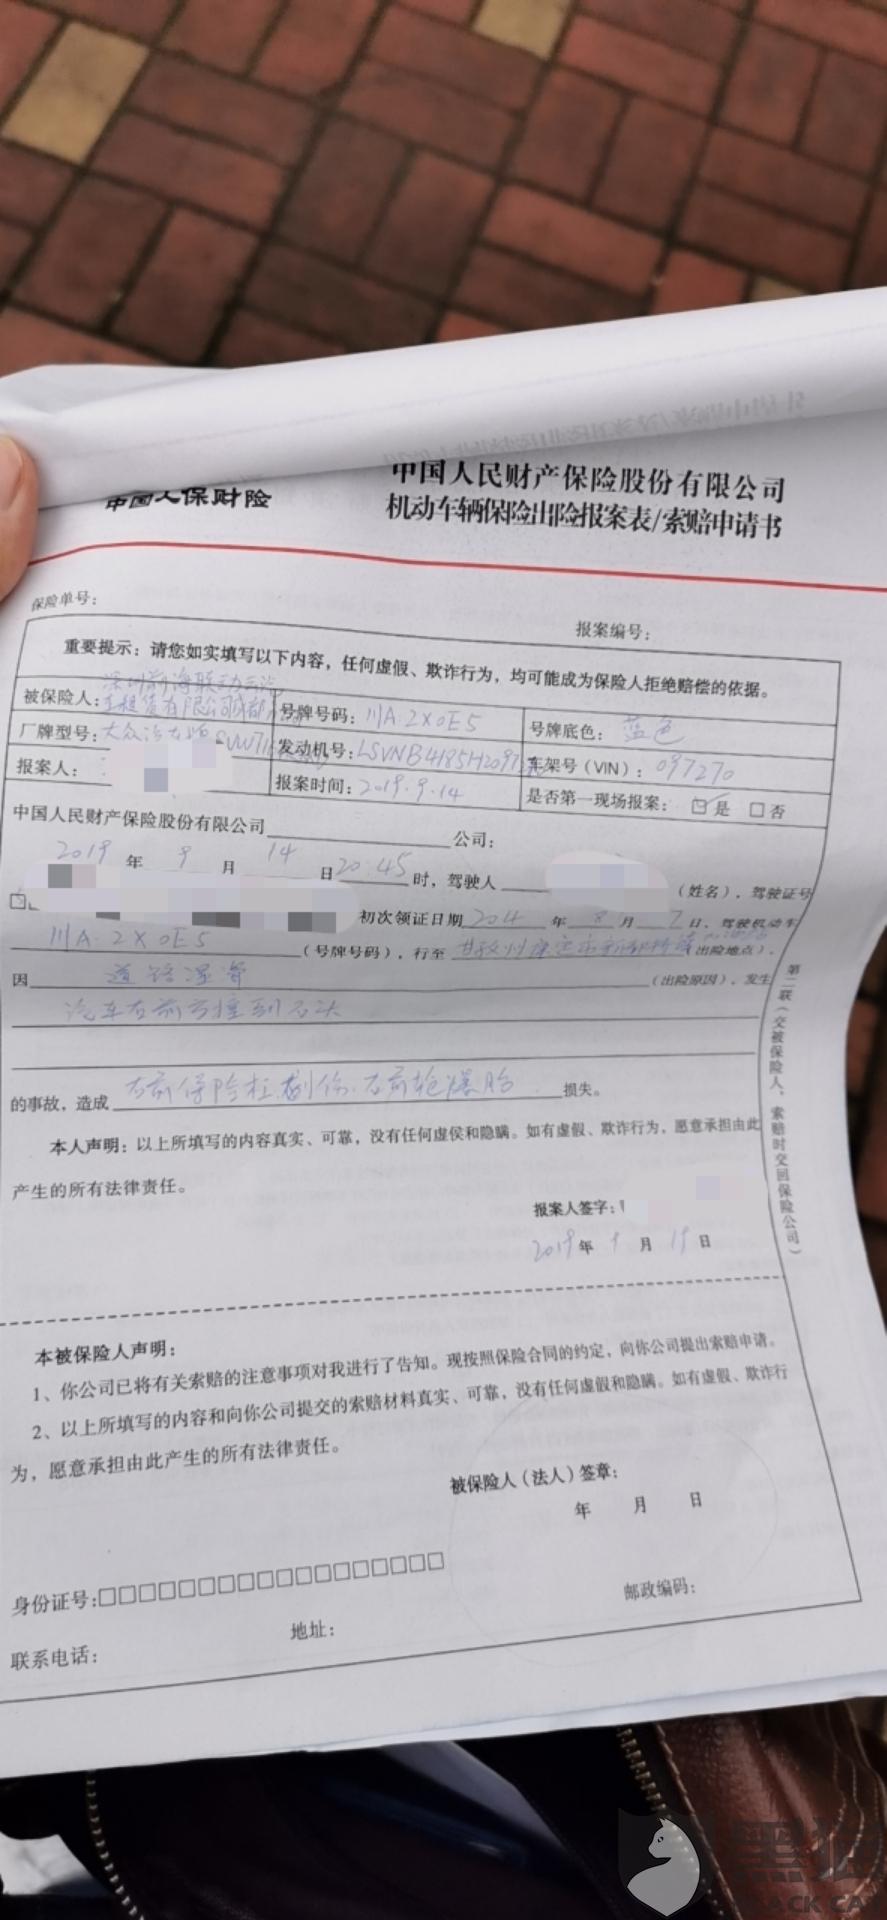 中国人保财险
中国人民财产保险股份有限公司
机动车辆保险出险报案表/索赔申请书
保险单号：
报案编号：
重要提示：请您如实填写以下内容，任何虚假、欺诈行为，均可能成为保险人拒绝赔偿的依据。
被保险人： 号牌号码：川A·2X0E5 号牌底色：蓝色
厂牌型号：大众汽车 发动机号：LSVNB4185H209 车架号（VIN）：097270
报案人： 报案时间：2019.9.14 是否第一现场报案：☑是 □否
中国人民财产保险股份有限公司 公司：
2019年9月14日20:45时，驾驶人（姓名），驾驶证号
初次领证日期 年8月7日，驾驶机动车
川A·2X0E5（号牌号码），行至甘孜州康定市 出险地点），
因道路湿滑（出险原因），发生
汽车右前方撞到石头
的事故，造成右前保险杠刮伤．右前轮爆胎损失。
本人声明：以上所填写的内容真实、可靠，没有任何虚侯和隐瞒。如有虚假、欺诈行为，愿意承担由此
产生的所有法律责任。
报案人签字：
2019年9月 日
第二联（交被保险人，索赔时交回保险公司）
本被保险人声明：
1、你公司已将有关索赔的注意事项对我进行了告知。现按照保险合同的约定，向你公司提出索赔申请。
2、以上所填写的内容和向你公司提交的索赔材料真实、可靠，没有任何虚假和隐瞒。如有虚假、欺诈行
为，愿意承担由此产生的所有法律责任。
被保险人（法人）签章：
年 月 日
身份证号：□□□□□□□□□□□□□□□□□□
邮政编码：
联系电话： 地址：
黑猫
BLACK CAT